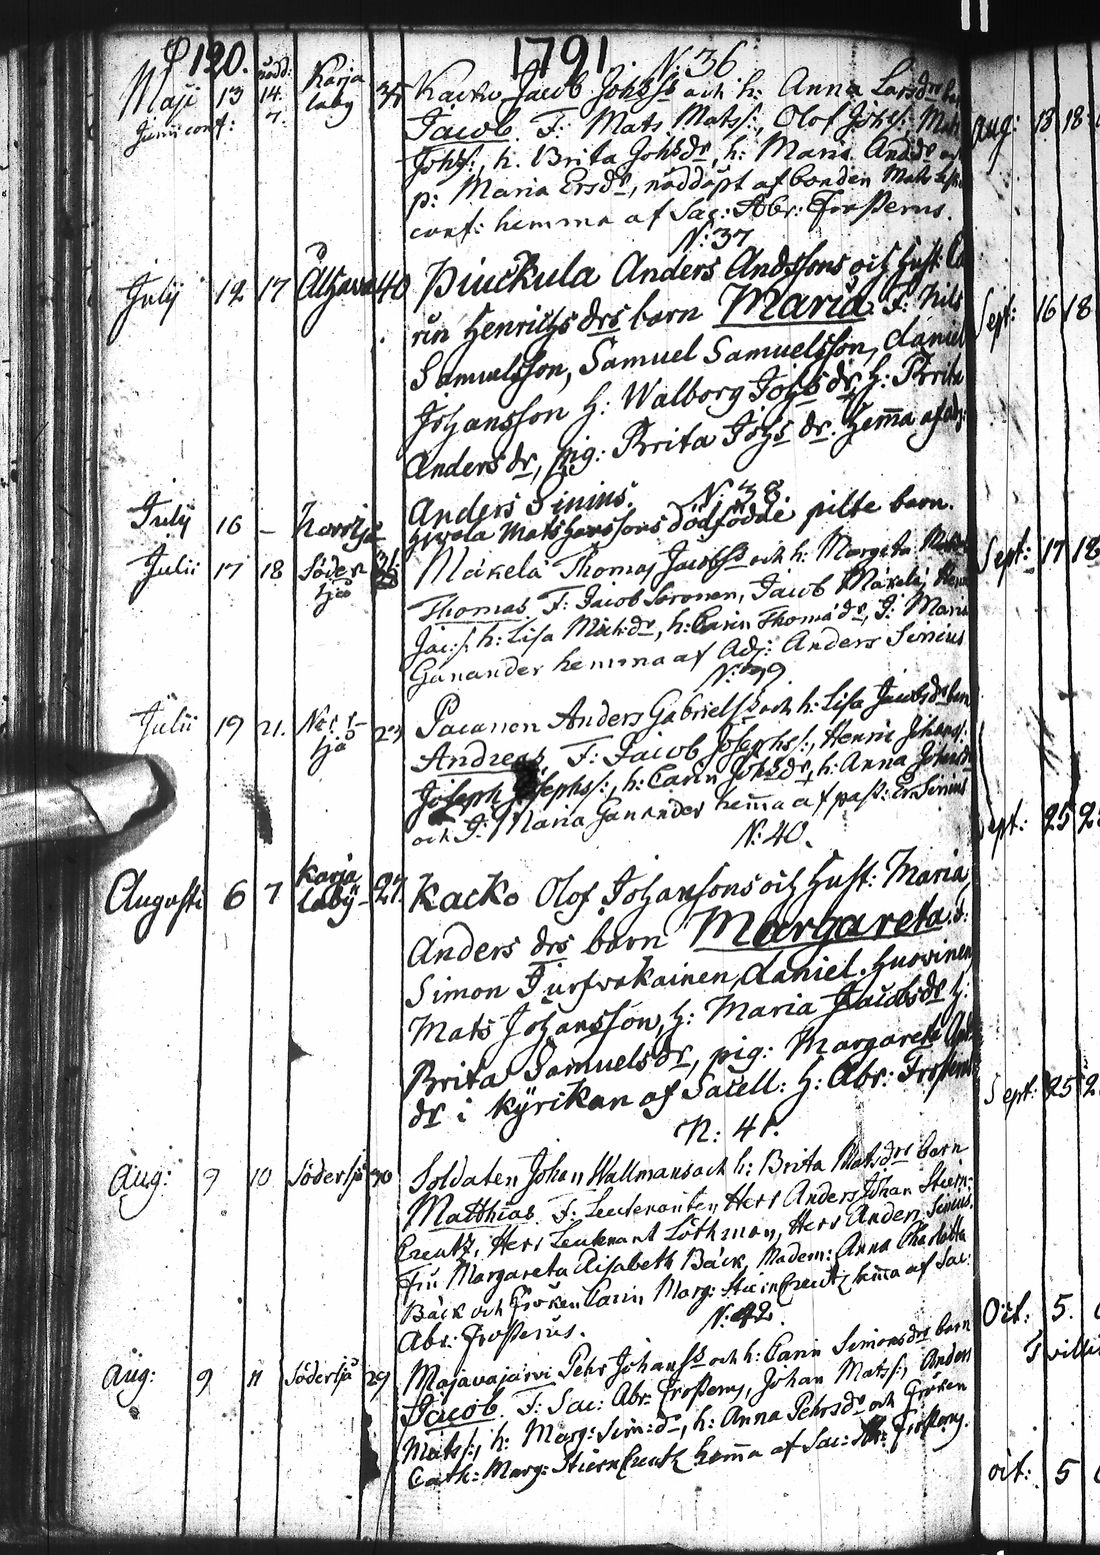 120. 1791 N: 36
Maji 13 14. Karja Kacko Jacob Johss och h: Anna Larsdrs
Junii conf: 7. laby Jacob. F: Mats Mats:, Olof Johs: Mats
Johs:, h. Brita Johsdr, h: Maria Andsdr
p: Maria Ersdr, nöddöpt af bonden Mats
conf: hemma af Sac: Abr: Frosterus.
N: 37
July 12 17 40 Piuckula Anders Andssons och Hust: Ca
rin Henrichs drs barn Maria. F: Nils
Samuelsson, Samuel Samuelsson, daniel
Johansson H: Walborg Johs dr, H: Brita
Anders dr, pig: Brita Johs dr. Hemma af adj:
Anders Sinius. N: 38.
July 16 – Norrsjö Mats Hanssons dödfödde pilte barn.
Julii 17 18 Söder Mäkelä Thomas Jacobss och h: Margeta
sjö Thomas. F: Jacob Soronen, Jacob Mäkelä,
Jac:s. h: Lisa Mich:dr, h: Carin Thoms dr, J: Maria
Ganander hemma af Adj: Anders Sinius
N: 39
Julii 19 21. Norr- Pacanen Anders Gabrielss och h: Lisa Jacobsdrs barn
sjö Andreas. F: Jacob Josephs:, Henric Johans:
Joseph Josephs:, h: Carin Johsdr, h: Anna Johsdr
och J: Maria Ganander hemma af past: Er: Sinius
N: 40.
Augusti 6 7 Karja 27. Kacko Olof Johanssons och Hust: Maria
laby Anders drs barn Margareta. F:
Simon Turfvakainen, daniel Huovinen,
Mats Johansson, H: Maria Jacobsdr H:
Brita Samuels dr, pig: Margareta And
dr i Kyrikan af Sacell: H: Abr: Frosterus
N: 41.
Aug: 9 10 Södersjö 30 Soldaten Johan Wallmans och h: Brita Matsdrs barn
Matthias. F: Leutenanten Herr Anders Johan Stiern-
Creutz, Herr Leutenant Löthman, Herr Anders Sinius.
Fru Margareta Elisabeth Bäck, Madem: Anna Charlotta
Bäck och Fröken Carin Marg: StiernCreutz hemma af Sac:
Abr: Frosterus. N: 42.
Aug: 9 11 Södersjö 29 Majavajärvi Pehr Johanss och h: Carin Simonsdrs barn
Jacob. F: Sac: Abr: Frosterus, Johan Mats:, Anders
Mats:, h: Marg: Sim:dr, h: Anna Pehrsdr och Fröken
Cath: Marg: StiernCreutz hemma af Sac: Abr: Frosterus.
Aug: 13 18
Sept: 16 18
Sept: 17 18
Sept: 25
Sept: 25
Oct: 5.
oct: 5